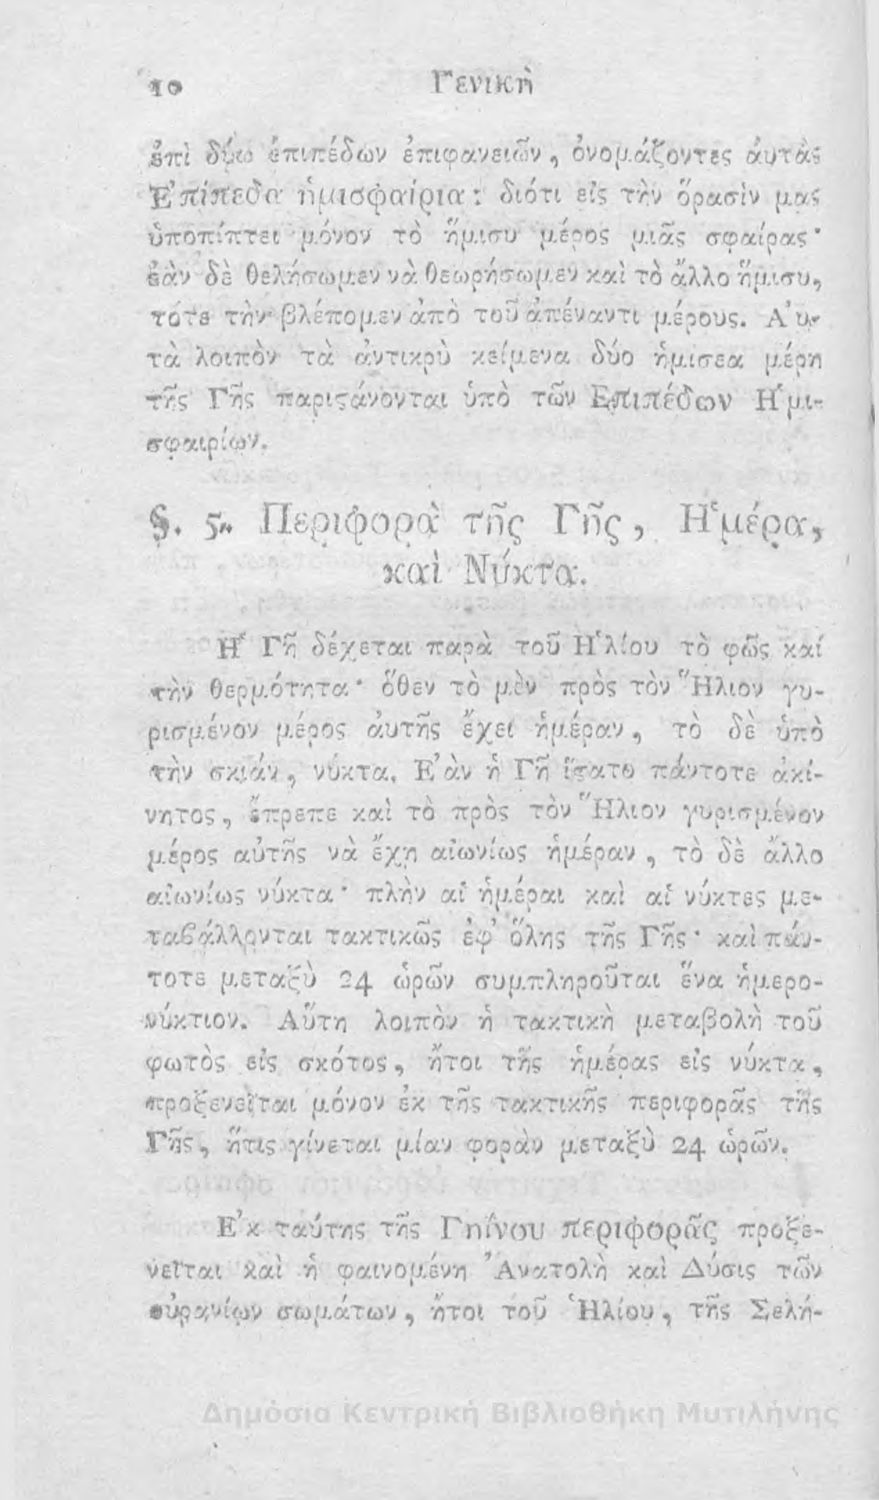 10 Γενικὴ
ἐπὶ δύω ἐπιπέδων ἐπιφανειῶν, ὀνομάζοντες ἀυτὰς
Ἐπίπεδα ἡμισφαίρια: διότι εἰς τὴν ὅρασίν μας
ὑποπίπτει μόνον τὸ ἥμισυ μέρος μιᾶς σφαίρας·
ἐὰν δὲ θελήσωμεν νὰ θεωρήσωμεν καὶ τὸ ἄλλο ἥμισυ,
τότε τὴν βλέπομεν ἀπὸ τοῦ ἀπέναντι μέρους. Ἀυ-
τὰ λοιπὸν τὰ ἀντικρὺ κείμενα δύο ἡμίσεα μέρη
τῆς Γῆς παριϛάνονται ὑπὸ τῶν Ἐπιπέδων Ἡμι-
σφαιρίων.
§. 5. Περιφορὰ τῆς Γῆς, Ἡμέρα,
καὶ Νύκτα.
Ἡ Γῆ δέχεται παρὰ τοῦ Ἡλίου τὸ φῶς καί
τὴν θερμότητα· ὅθεν τὸ μὲν πρὸς τὸν Ἥλιον γυ-
ρισμένον μέρος ἀυτῆς ἔχει ἡμέραν, τὸ δὲ ὑπὸ
τὴν σκιάν, νύκτα. Ἐὰν ἡ Γῆ ἵϛατο πάντοτε ἀκί-
νητος, ἔπρεπε καὶ τὸ πρὸς τὸν Ἥλιον γυρισμένον
μέρος αὐτῆς νὰ ἔχῃ αἰωνίως ἡμέραν, τὸ δὲ ἄλλο
αἰωνίως νύκτα· πλὴν αἱ ἡμέραι καὶ αἱ νύκτες με-
ταβάλλονται τακτικῶς ἐφ' ὅλης τῆς Γῆς· καὶ πάν-
τοτε μεταξὺ 24 ὡρῶν συμπληροῦται ἕνα ἡμερο-
νύκτιον. Αὕτη λοιπὸν ἡ τακτικὴ μεταβολὴ τοῦ
φωτὸς εἰς σκότος, ἤτοι τῆς ἡμέρας εἰς νύκτα,
προξενεῖται μόνον ἐκ τῆς τακτικῆς περιφορᾶς τῆς
Γῆς, ἥτις γίνεται μίαν φορὰν μεταξὺ 24 ὡρῶν.
Ἐκ ταύτης τῆς Γηΐνου περιφορᾶς προξε-
νεῖται καὶ ἡ φαινομένη Ἀνατολὴ καὶ Δύσις τῶν
οὐρανίων σωμάτων, ἤτοι τοῦ Ἡλίου, τῆς Σελή-
Δημόσια Κεντρική Βιβλιοθήκη Μυτιλήνης